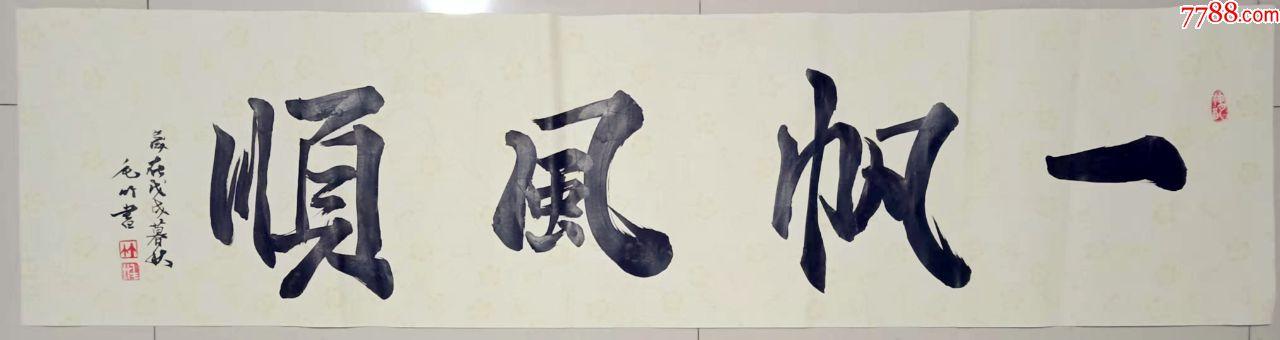 一帆風順
歲在戊戌暮秋
毛竹書
7788.com